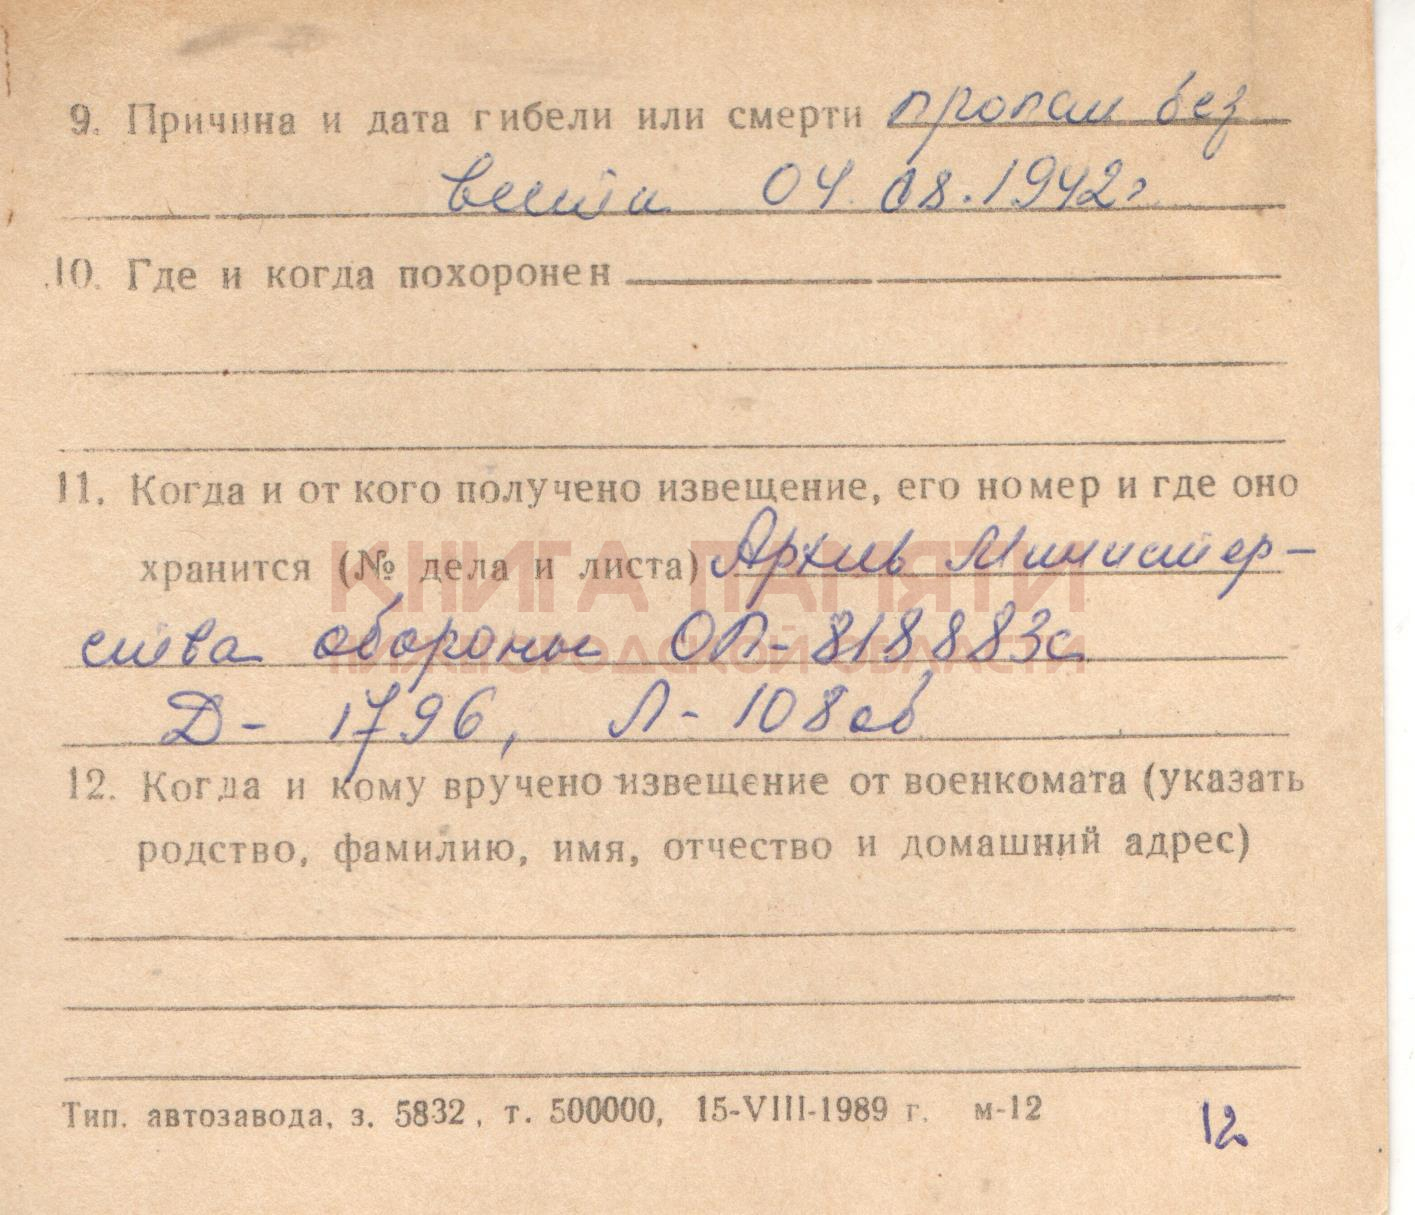 9. Причина и дата гибели или смерти пропал без
вести 04.08.1942г
10. Где и когда похоронен
11. Когда и от кого получено извещение, его номер и где оно
хранится (№ дела и листа) Архив Министер-
ства обороны ОП-818883с
Д- 1796, Л-108об
КНИГА ПАМЯТИ
НИЖЕГОРОДСКОЙ ОБЛАСТИ
12. Когда и кому вручено извещение от военкомата (указать
родство, фамилию, имя, отчество и домашний адрес)
Тип. автозавода, з. 5832, т. 500000, 15-VIII-1989 г. м-12
12